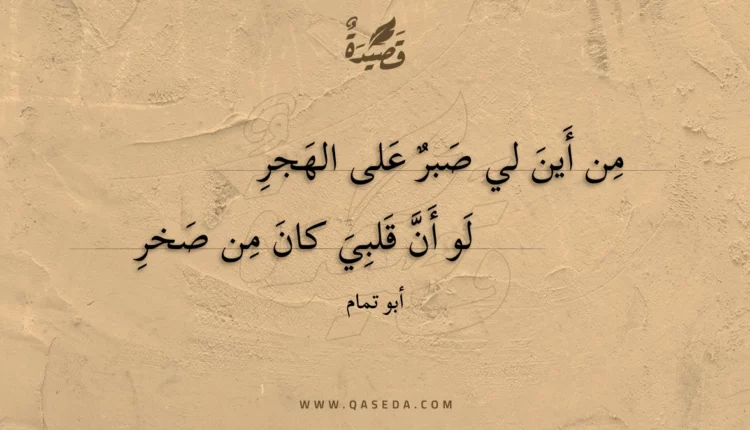 قَصِيدَةٌ
مِن أَينَ لي صَبرٌ عَلى الهَجرِ
لَو أَنَّ قَلبِيَ كانَ مِن صَخرِ
أبو تمام
WWW.QASEDA.COM